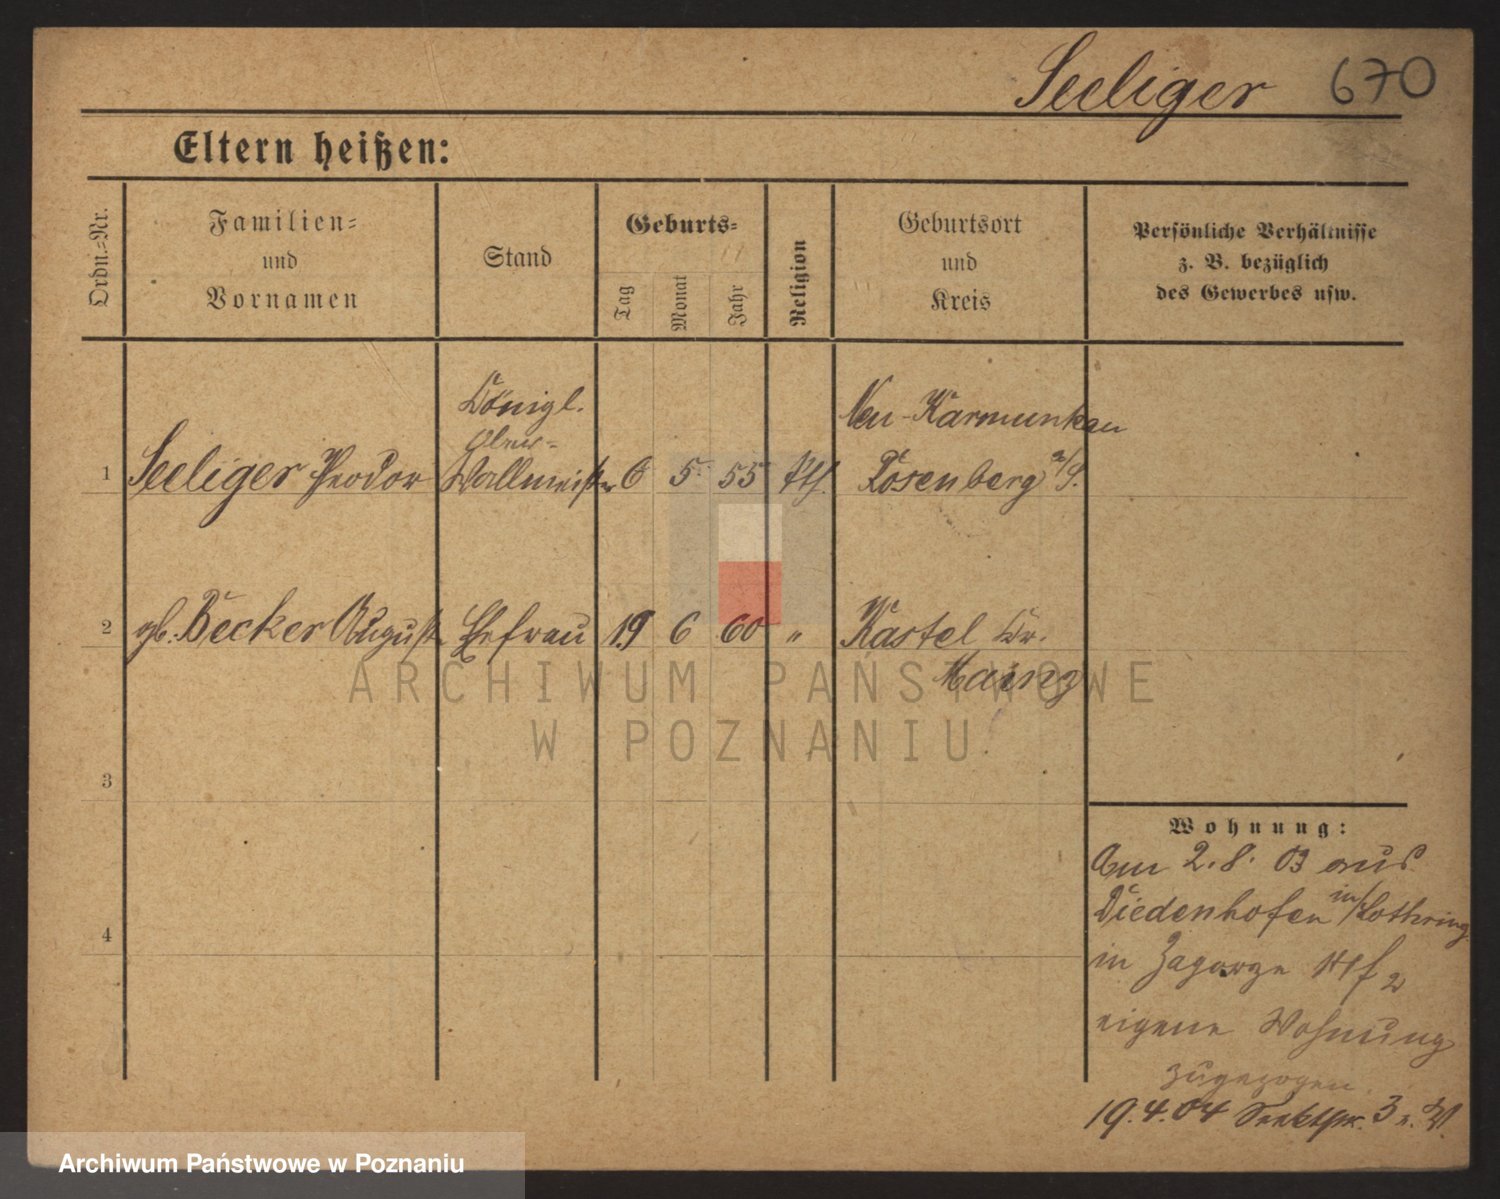 Seeliger 670
Eltern heißen:
Ordn.=Nr.
Familien=
und
Vornamen
Stand
Geburts=
Tag
Monat
Jahr
Religion
Geburtsort
und
Kreis
Persönliche Verhältnisse
z. B. bezüglich
des Gewerbes usw.
Königl.
Ober-
1 Seeliger Theodor Wallmeister 6 5 55 kth. Neu-Karmunkau
Rosenberg o/S.
2 gb. Becker August Ehefrau 19 6 60 " Kastel Kr.
Mainz
3
4
Wohnung:
Am 2.8.03 aus
Diedenhofen in/Lothring
in Zagorze
eigene Wohnung
zugezogen
19.4.04 3 n. W.
ARCHIWUM PAŃSTWOWE
W POZNANIU
Archiwum Państwowe w Poznaniu